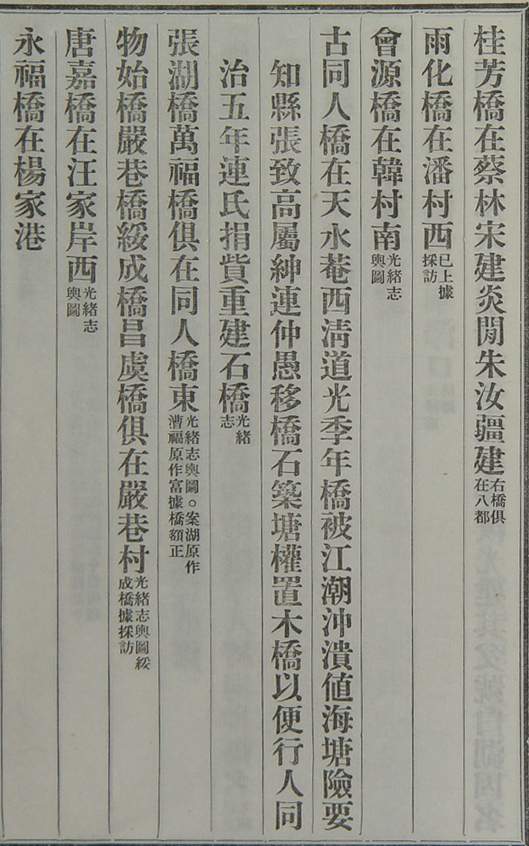 桂芳橋在蔡林宋建炎閒朱汝疆建右橋俱在八都
雨化橋在潘村西已上據採訪
會源橋在韓村南光緒志輿圖
古同人橋在天水菴西淸道光季年橋被江潮沖潰値海塘險要
知縣張致高屬紳連仲愚移橋石築塘權置木橋以便行人同
治五年連氏捐貲重建石橋光緒志
張湖橋萬福橋俱在同人橋東光緒志輿圖○案湖原作漕福原作富據橋額正
物始橋嚴巷橋綏成橋昌虞橋俱在嚴巷村光緒志輿圖綏成橋據採訪
唐嘉橋在汪家岸西光緒志輿圖
永福橋在楊家港